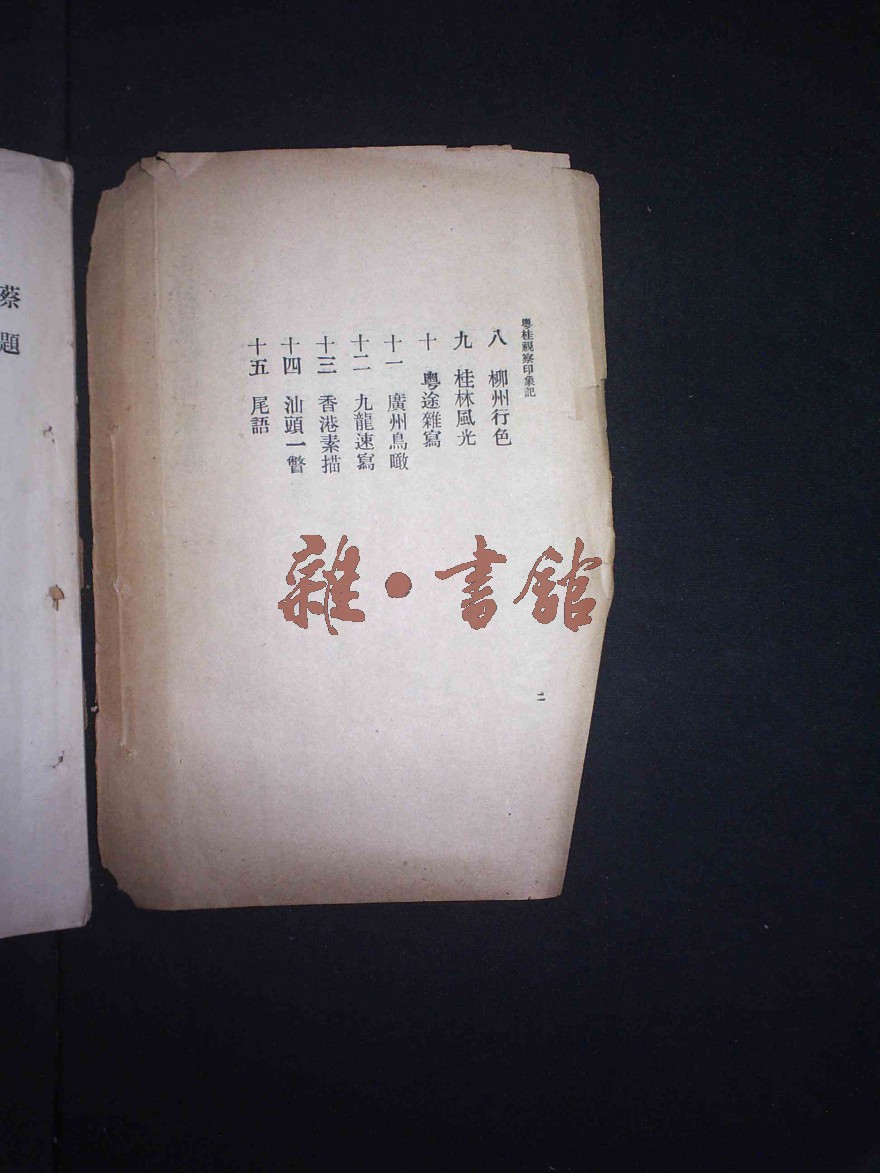 粵桂視察印象記
八 柳州行色
九 桂林風光
十 粵途雜寫
十一 廣州鳥瞰
十二 九龍速寫
十三 香港素描
十四 汕頭一瞥
十五 尾語
二
雜·書館
蔡
題